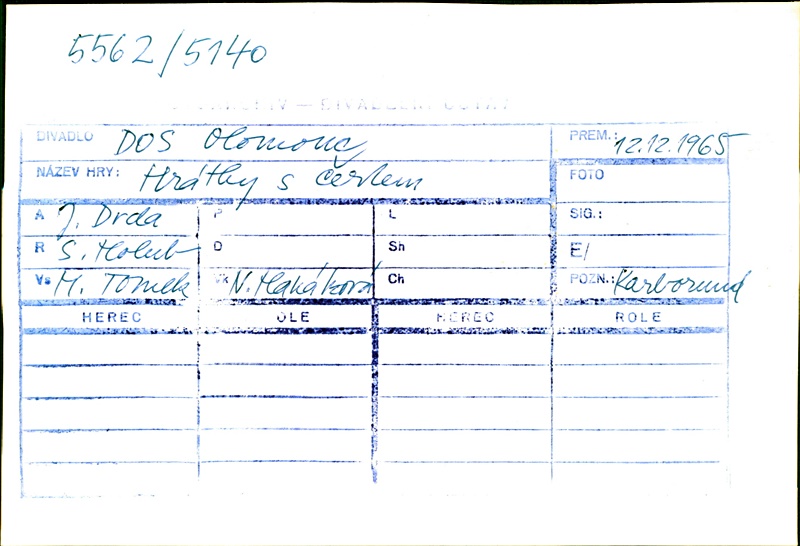 5562/5140
DIVADLO DOS Olomouc PREM.: 12.12.1965
NÁZEV HRY: Hrátky s čertem FOTO
A J. Drda P L SIG.:
R S. Holub D Sh E/
Vs M. Tomek Vk N. Hanáková Ch POZN.: Karborund
HEREC OLE HEREC ROLE